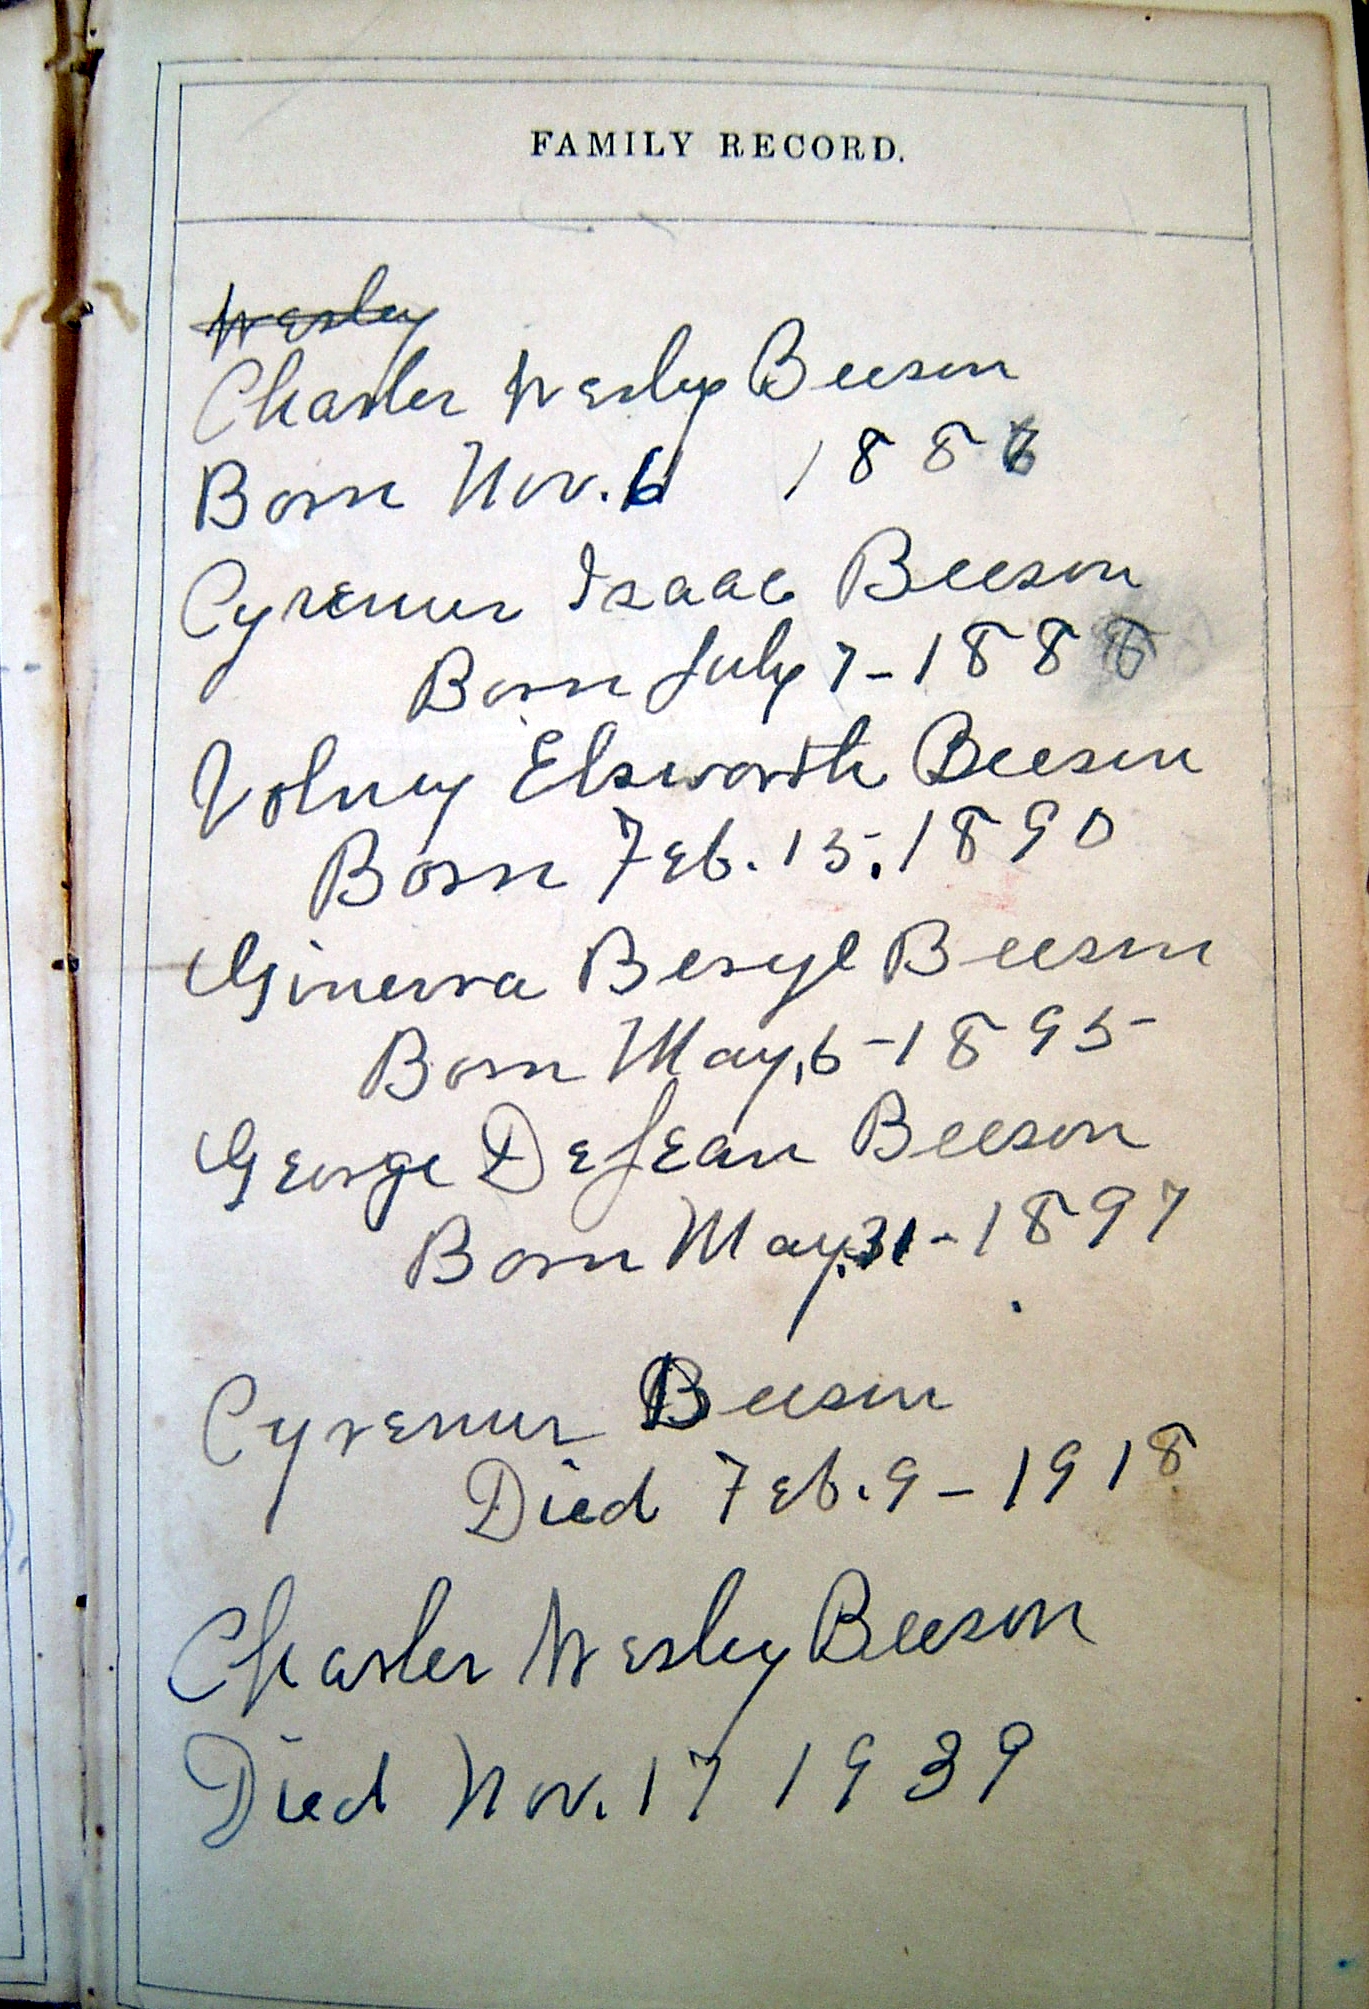 FAMILY RECORD.
Wesley
Charles Wesley Beeson
Born Nov. 6 1886
Cyrenus Isaac Beeson
Born July 7-1888
Volney Elsworth Beeson
Born Feb. 15, 1890
Ginevra Beryl Beeson
Born May, 6-1895
George DeJean Beeson
Born May, 31-1897
Cyrenus Beeson
Died Feb. 9-1918
Charles Wesley Beeson
Died Nov. 17 1939